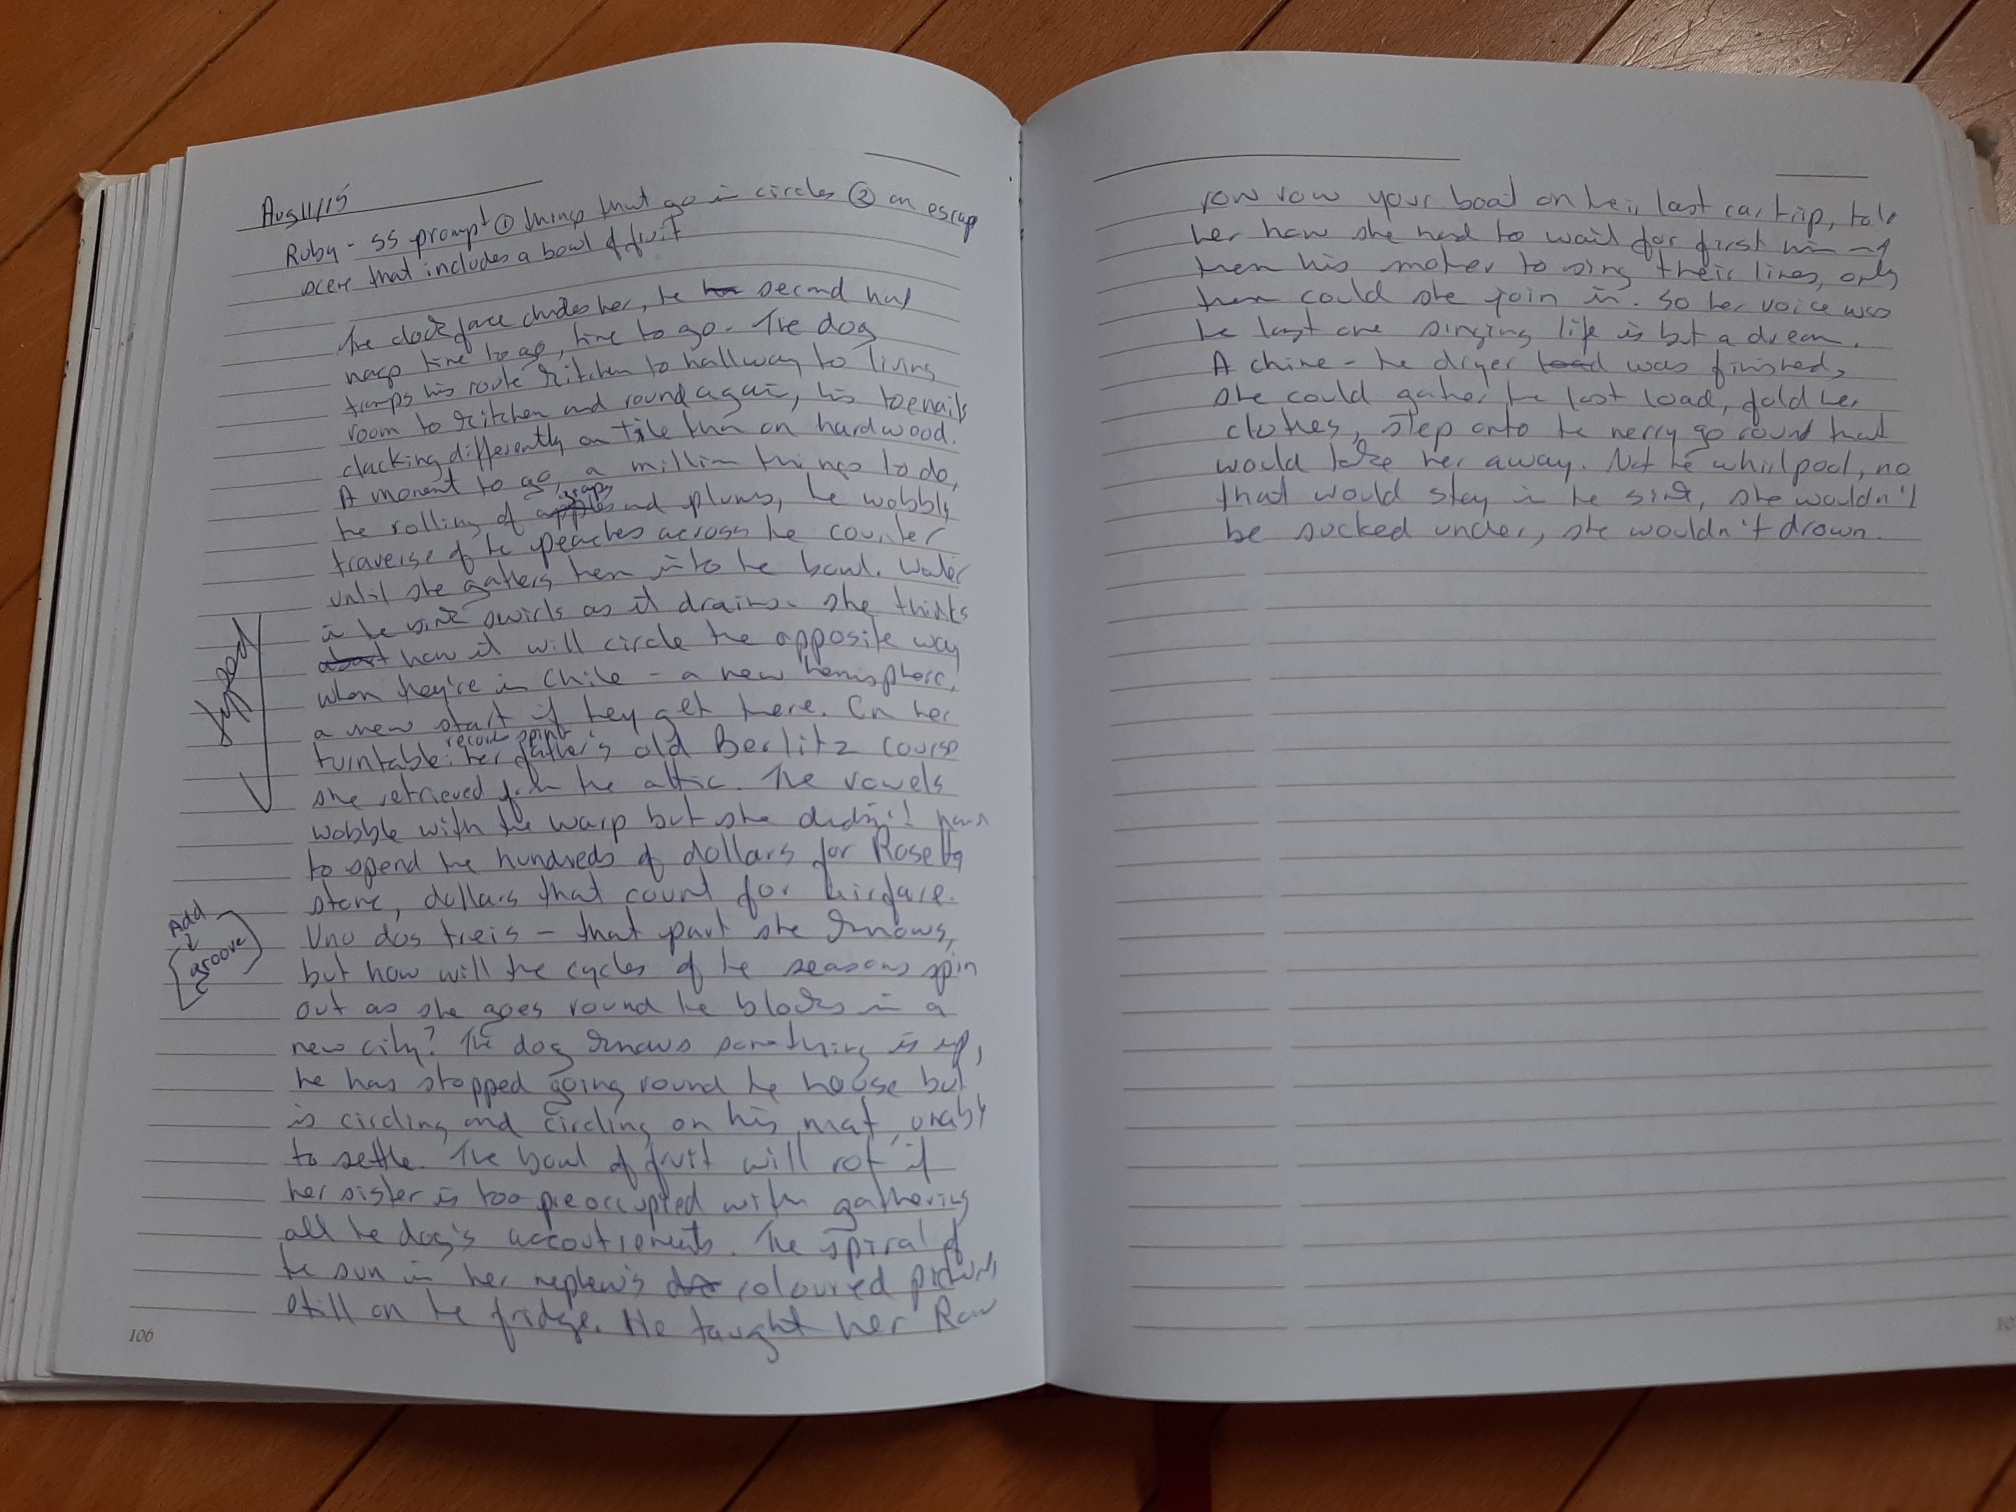 Aug 11/15
Ruby - SS prompt ① things that go in circles ② an escap
scene that includes a bowl of fruit
The clock face chides her, the second hand
nags time to go, time to go. The dog
tramps his route kitchen to hallway to living
room to kitchen and round again, his toenails
clacking differently on tile than on hardwood.
A moment to go, a million things to do,
the rolling of apples grapes and plums, the wobbly
traverse of the peaches across the counter
until she gathers them into the bowl. Water
in the sink swirls as it drains. She thinks
about how it will circle the opposite way
when they're in Chile - a new hemisphere,
a new start if they get there. On her
record spins
turntable: her father's old Berlitz course
she retrieved from the attic. The vowels
wobble with the warp but she didn't have
to spend the hundreds of dollars for Rosetta
stone, dollars that count for airfare.
Uno dos treis - that part she knows,
but how will the cycles of the seasons spin
out as she goes round the blocks in a
new city? The dog knows something is up,
he has stopped going round the house but
is circling and circling on his mat, unable
to settle. The bowl of fruit will rot if
her sister is too preoccupied with gathering
all the dog's accoutrements. The spiral of
the sun in her nephew's coloured picture,
still on the fridge. He taught her Row
typed
Add
groove
106
row row your boat on their last car trip, told
her how she had to wait for first him and
then his mother to sing their lines, only
then could she join in. So her voice was
the last one singing life is but a dream.
A chime - the dryer load was finished,
she could gather the last load, fold her
clothes, step onto the merry go round that
would take her away. Not the whirlpool, no
that would stay in the sink, she wouldn't
be sucked under, she wouldn't drown.